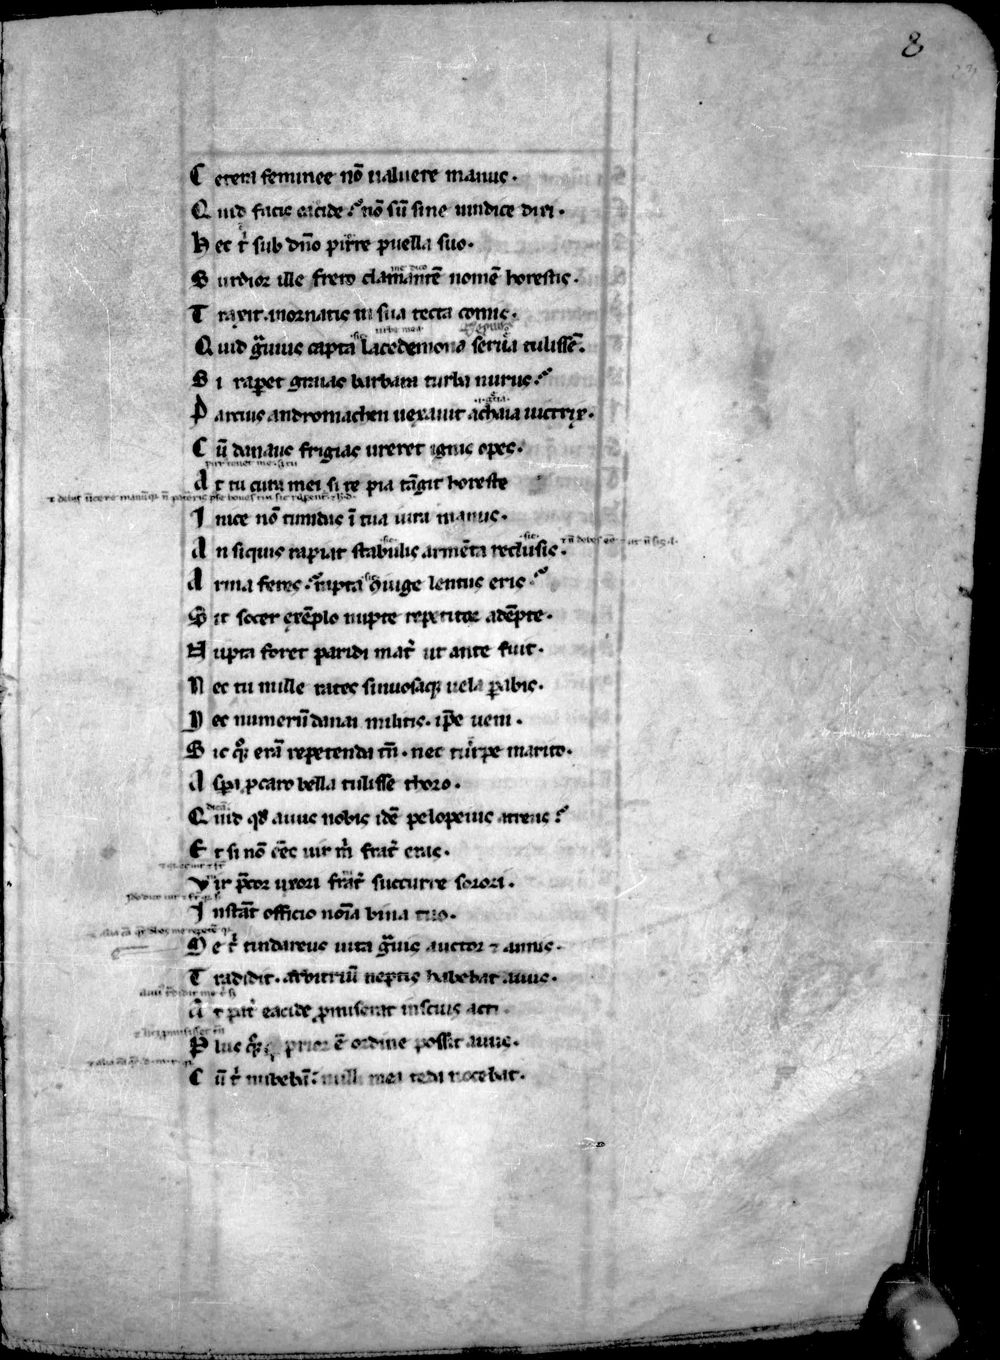 8
Cetera feminee nō ualuere manus.
Quid facis eacide? nō sū sine uindice dixi.
Hec t̄ sub dn̄o pirre puella suo.
Surdior ille freto clamantē nomē horestis.
Traxit inornatis in sua tecta comis.
Quid g̃uius capta lacedemone serua tulissē.
Si raperet graias barbara turba nurus?
Parcius andromachen uexauit achaia uictrix.
Cū danaus frigias ureret ignis opes.
At tu cura mei si te pia tāgit horeste
Inice nō timidas ī tua iura manus.
An siquis rapiat stabulis armēta reclusis.
Arma feres? rapta ꝯiuge lentus eris?
Sit socer exēplo nupte repetitor adēpte.
Nupta foret paridi mat̃ ut ante fuit.
Nec tu mille rates sinuosaq; uela ꝑabis.
Nec numerū danai militis. ip̄e ueni.
Sic q̃; erā repetenda tn̄. nec turpe marito.
Aspa ꝓ caro bella tulisse thoro.
Quid qd̕ auus nobis idē pelopeius atreus?
Et si nō cēs uir m̄ frat̃ eras.
Vir p̄cor uxori frat̃ succurre sorori.
Instāt officio noīa bina tuo.
Me t̄ tindareus uita g̃uis auctor ⁊ annis.
Tradidit. arbitriū neptis habebat auus.
At pat̃ eacide ꝓmiserat inscius acti.
Plus q̃; prior ē ordine possit auus.
Cū t̄ nubebā. nulli mea teda nocebat.